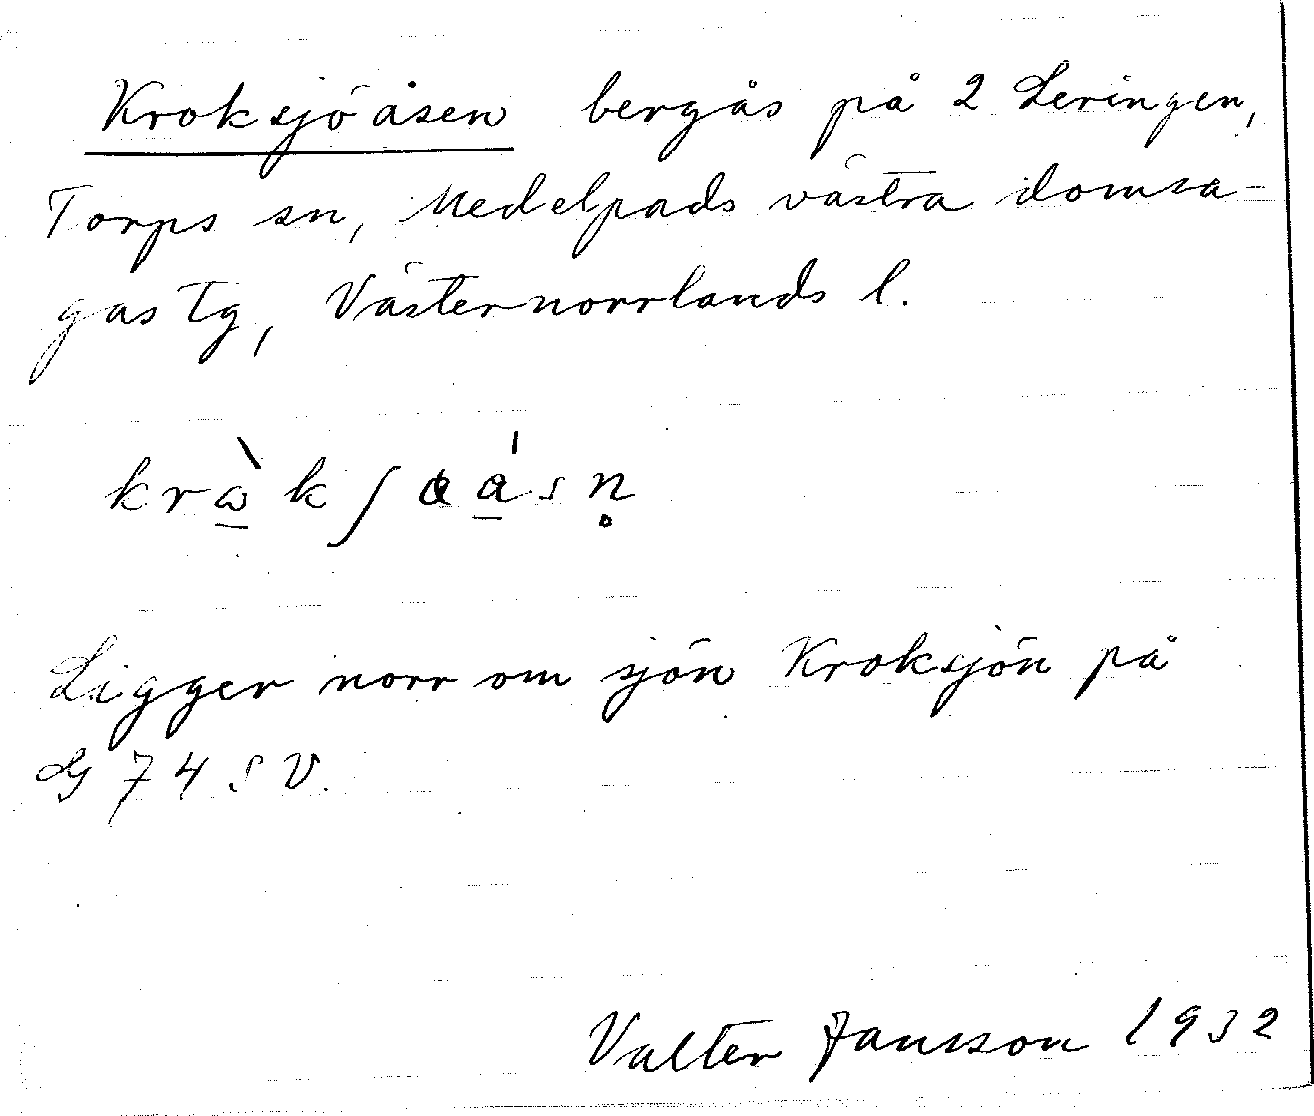 Kroksjöåsen bergås på 2 Leringen,
Torps sn, Medelpads västra domsa-
gas tg, Västernorrlands l.
Ligger norr om sjön Kroksjön på
G 74 SV.
Valter Jansson 1932